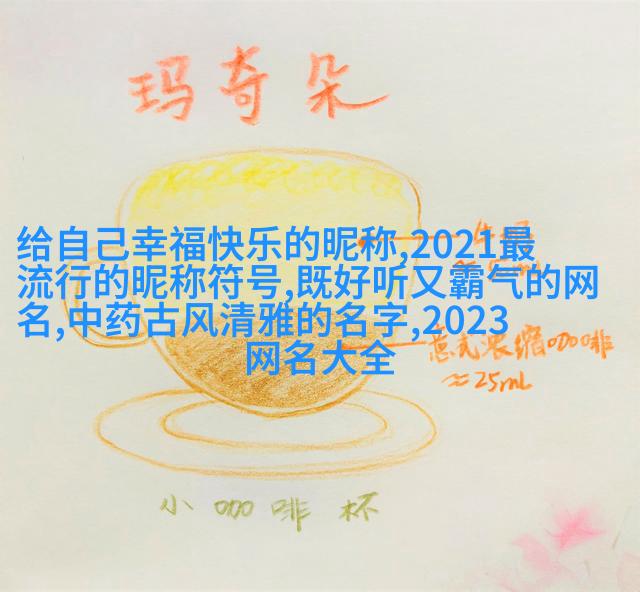 玛奇朵
给自己幸福快乐的昵称,2021最
流行的昵称符号,既好听又霸气的网
名,中药古风清雅的名字,2023
网名大全
意式浓缩咖啡
≈25mL
小咖啡杯